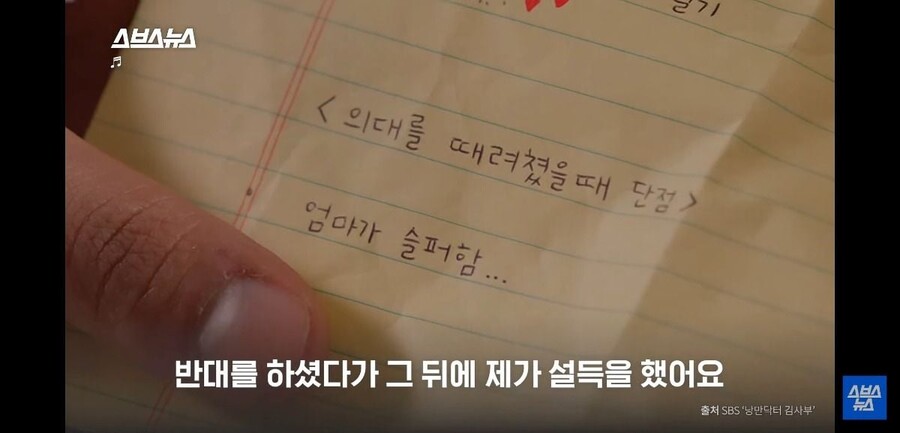 스브스뉴스
<의대를 때려쳤을때 단점>
엄마가 슬퍼함...
반대를 하셨다가 그 뒤에 제가 설득을 했어요
스브스
뉴스
출처 SBS '낭만닥터 김사부'